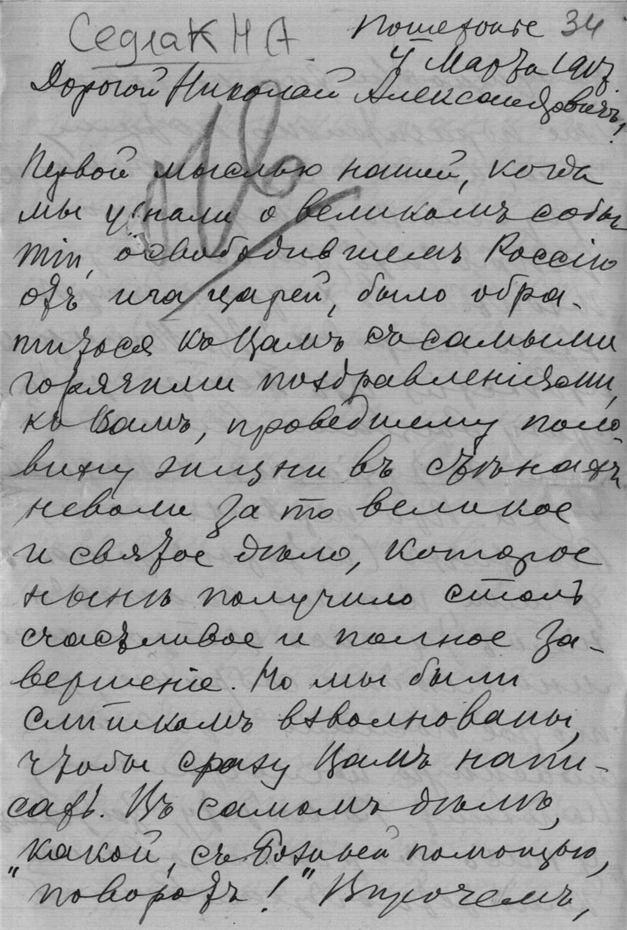 Седлак Н А.
Пошехонье 34
4 Марта 1917.
Дорогой Николай Александровичъ!
Первой мыслью нашей, когда
мы узнали о великомъ собы-
тіи, освободившемъ Россію
отъ ига царей, было обра-
титься къ Вамъ съ самыми
горячими поздравленіями,
къ Вамъ, проведшему поло
вину жизни въ стѣнахъ
неволи за то великое
и святое дѣло, которое
нынѣ получило столь
счастливое и полное за-
вершеніе. Но мы были
слишкомъ взволнованы,
чтобы сразу Вамъ напи-
сать. Въ самомъ дѣлѣ,
какой, съ Божьей помощью,
"поворотъ!" Впрочемъ,